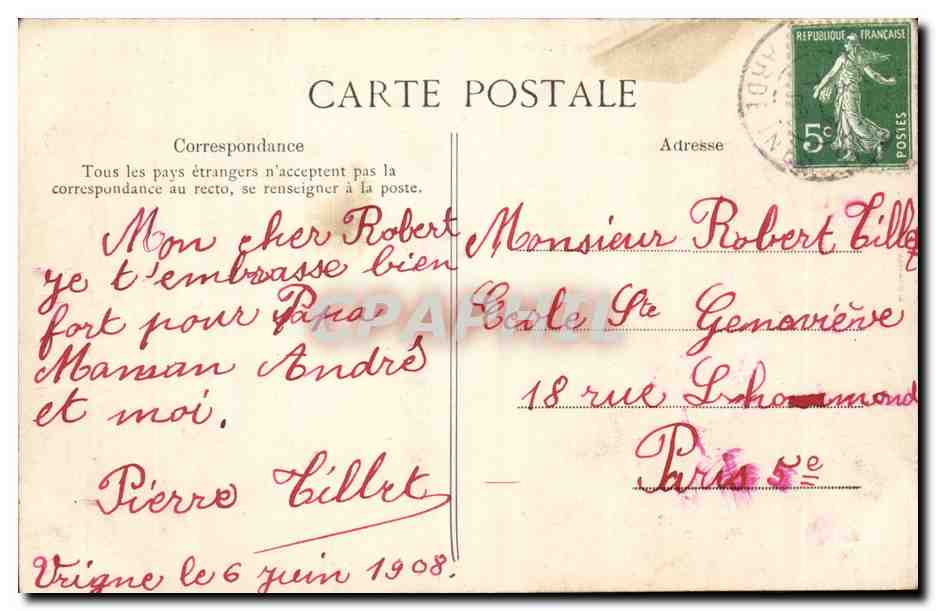 CARTE POSTALE
REPUBLIQUE FRANÇAISE
5c
POSTES
ARDE
Correspondance
Tous les pays étrangers n'acceptent pas la
correspondance au recto, se renseigner à la poste.
Mon cher Robert
je t'embrasse bien
fort pour Papa
Maman André
et moi.
Pierre Tillet
Vrigne le 6 juin 1908.
Adresse
Monsieur Robert Tillet
Ecole Ste Geneviève
18 rue Lhommond
Paris 5e
CPAPHIL